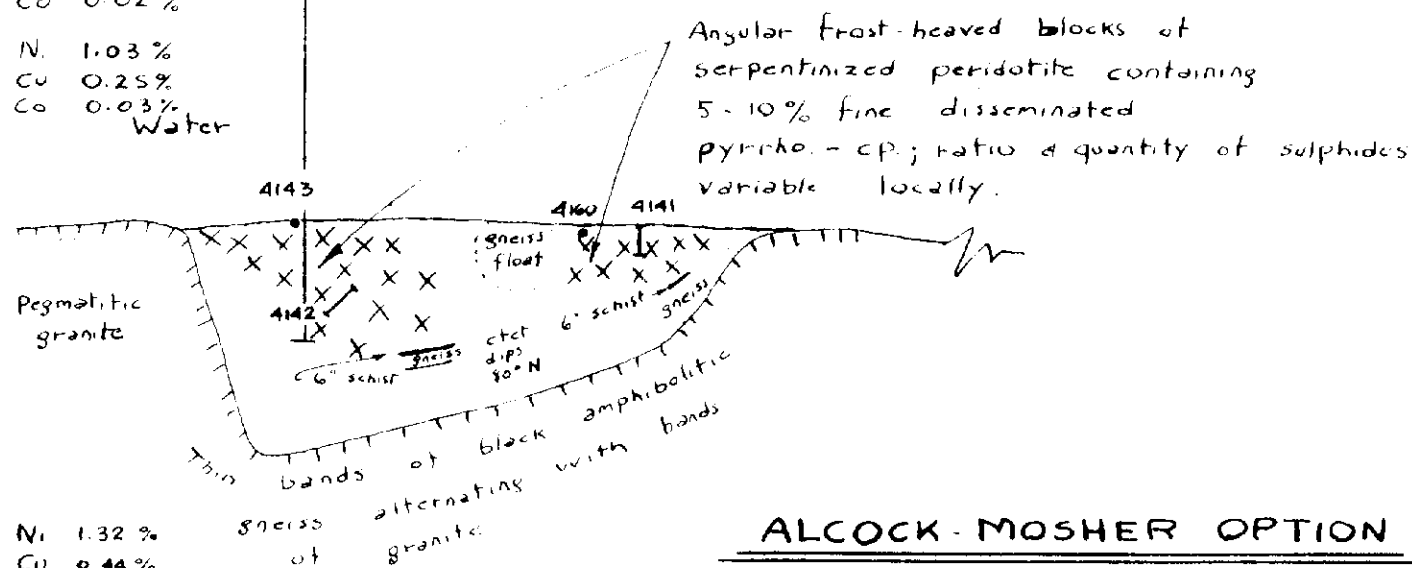 Co 0.02 %
Ni 1.03 %
Cu 0.25%
Co 0.03%
Water
Angular frost-heaved blocks of
serpentinized peridotite containing
5-10% fine disseminated
pyrrho. - cp.; ratio & quantity of sulphides
variable locally.
4143
4160 4141
gneiss
float
Pegmatitic
granite
4142
6" schist
gneiss
ctct
dips
80° N
6" schist
gneiss
Thin bands of black amphibolitic
gneiss alternating with bands
of granite
Ni 1.32 %
Cu 0.44 %
ALCOCK-MOSHER OPTION